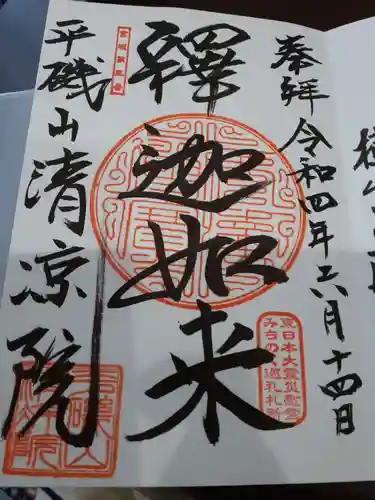 奉拝 令和四年六月十四日
釋迦如来
平磯山清凉院
宮城第三番
東日本大震災慰霊
みちのく巡礼札所